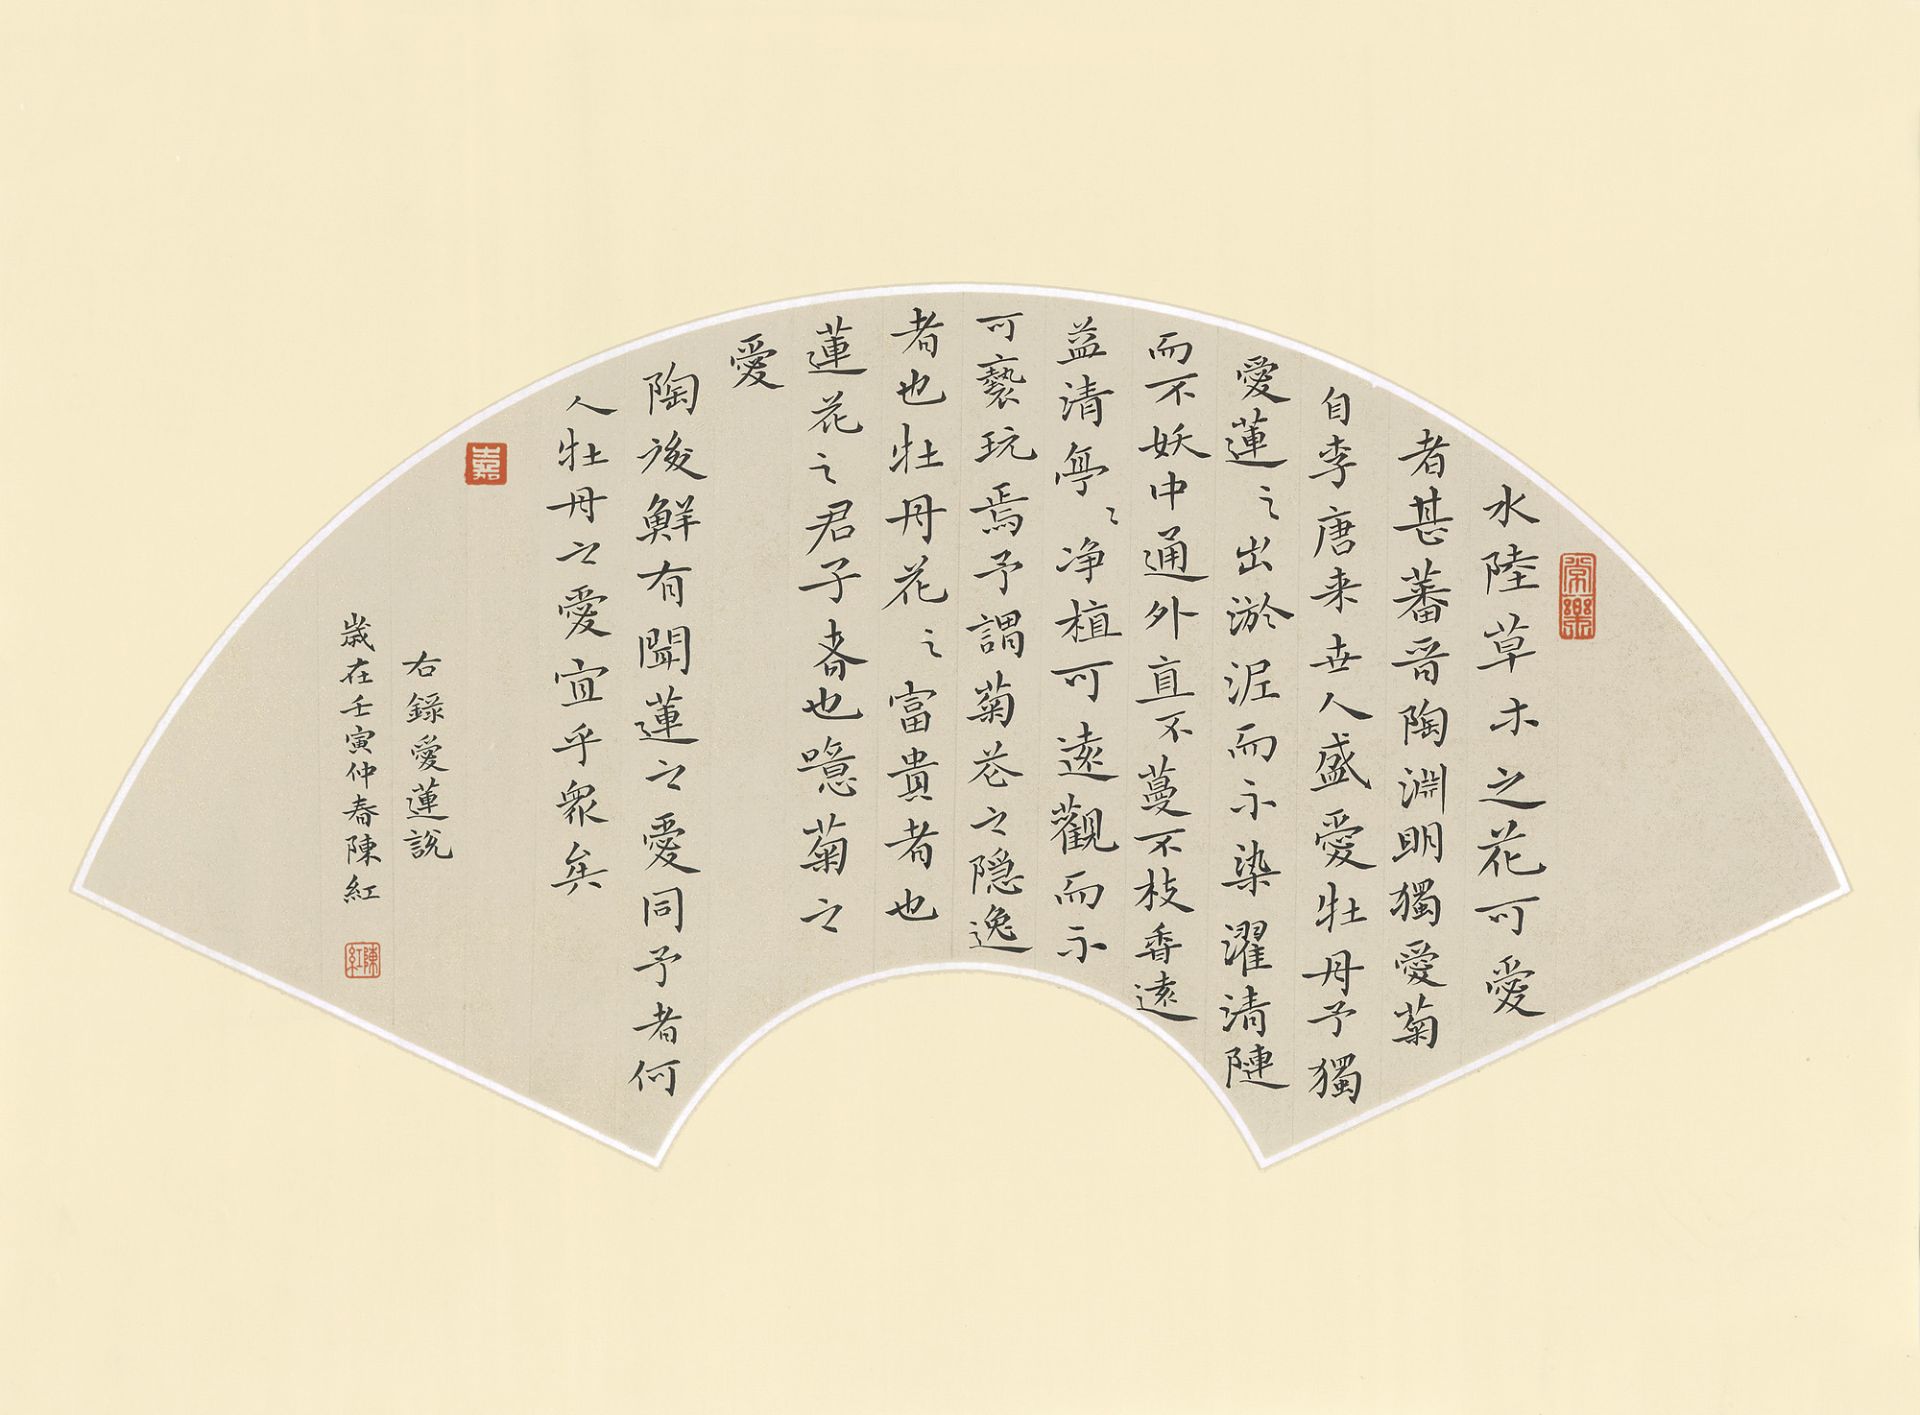 常樂
水陸草木之花可愛
者甚蕃晉陶淵明獨愛菊
自李唐来世人盛愛牡丹予獨
愛蓮之出淤泥而不染濯清漣
而不妖中通外直不蔓不枝香遠
益清亭〻净植可遠觀而不
可褻玩焉予謂菊花之隠逸
者也牡丹花之富貴者也
蓮花之君子者也噫菊之
愛
陶後鮮有聞蓮之愛同予者何
人牡丹之愛宜乎眾矣
嘉
右錄愛蓮説
歲在壬寅仲春陳紅
陳紅